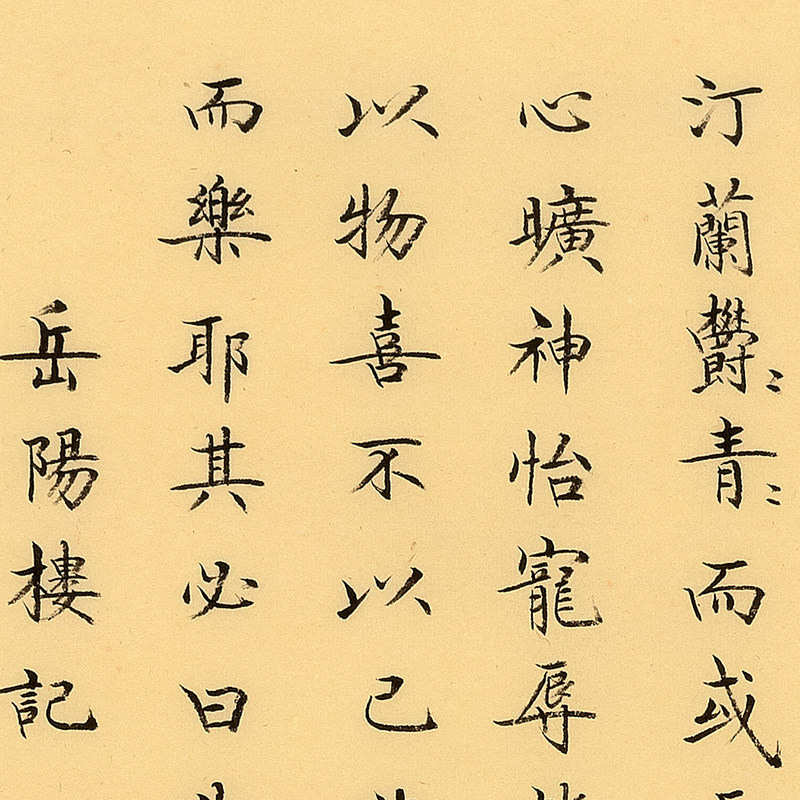 汀蘭欝〻青〻而或
心曠神怡寵辱
以物喜不以己
而樂耶其必曰
岳陽樓記